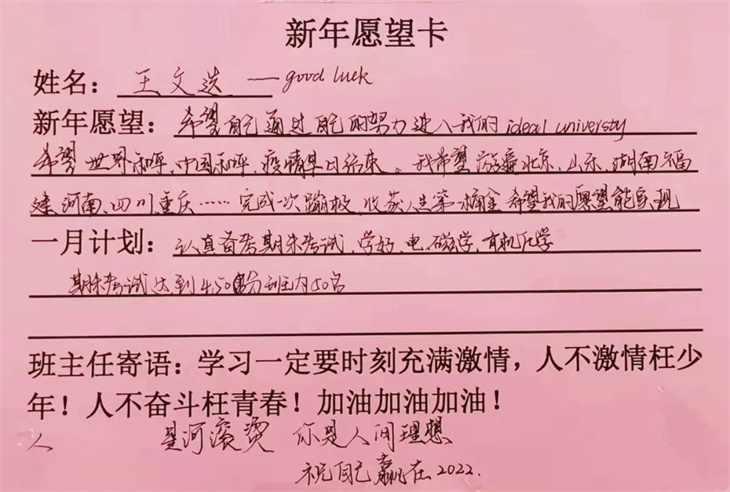 新年愿望卡
姓名： 王文选 — good luck
新年愿望： 希望自己通过自己的努力进入我的ideal universty
希望世界和平，中国和平，疫情早日结束。我希望游遍北京，山东，湖南福
建，河南，四川，重庆……完成一次蹦极，收获人生第一桶金 希望我的愿望能实现
一月计划： 认真备考期末考试，学好，电，磁学，有机化学
期末考试达到450分 班内50名
班主任寄语：学习一定要时刻充满激情，人不激情枉少
年！人不奋斗枉青春！加油加油加油！
人 星河滚烫 你是人间理想
祝自己赢在2022.